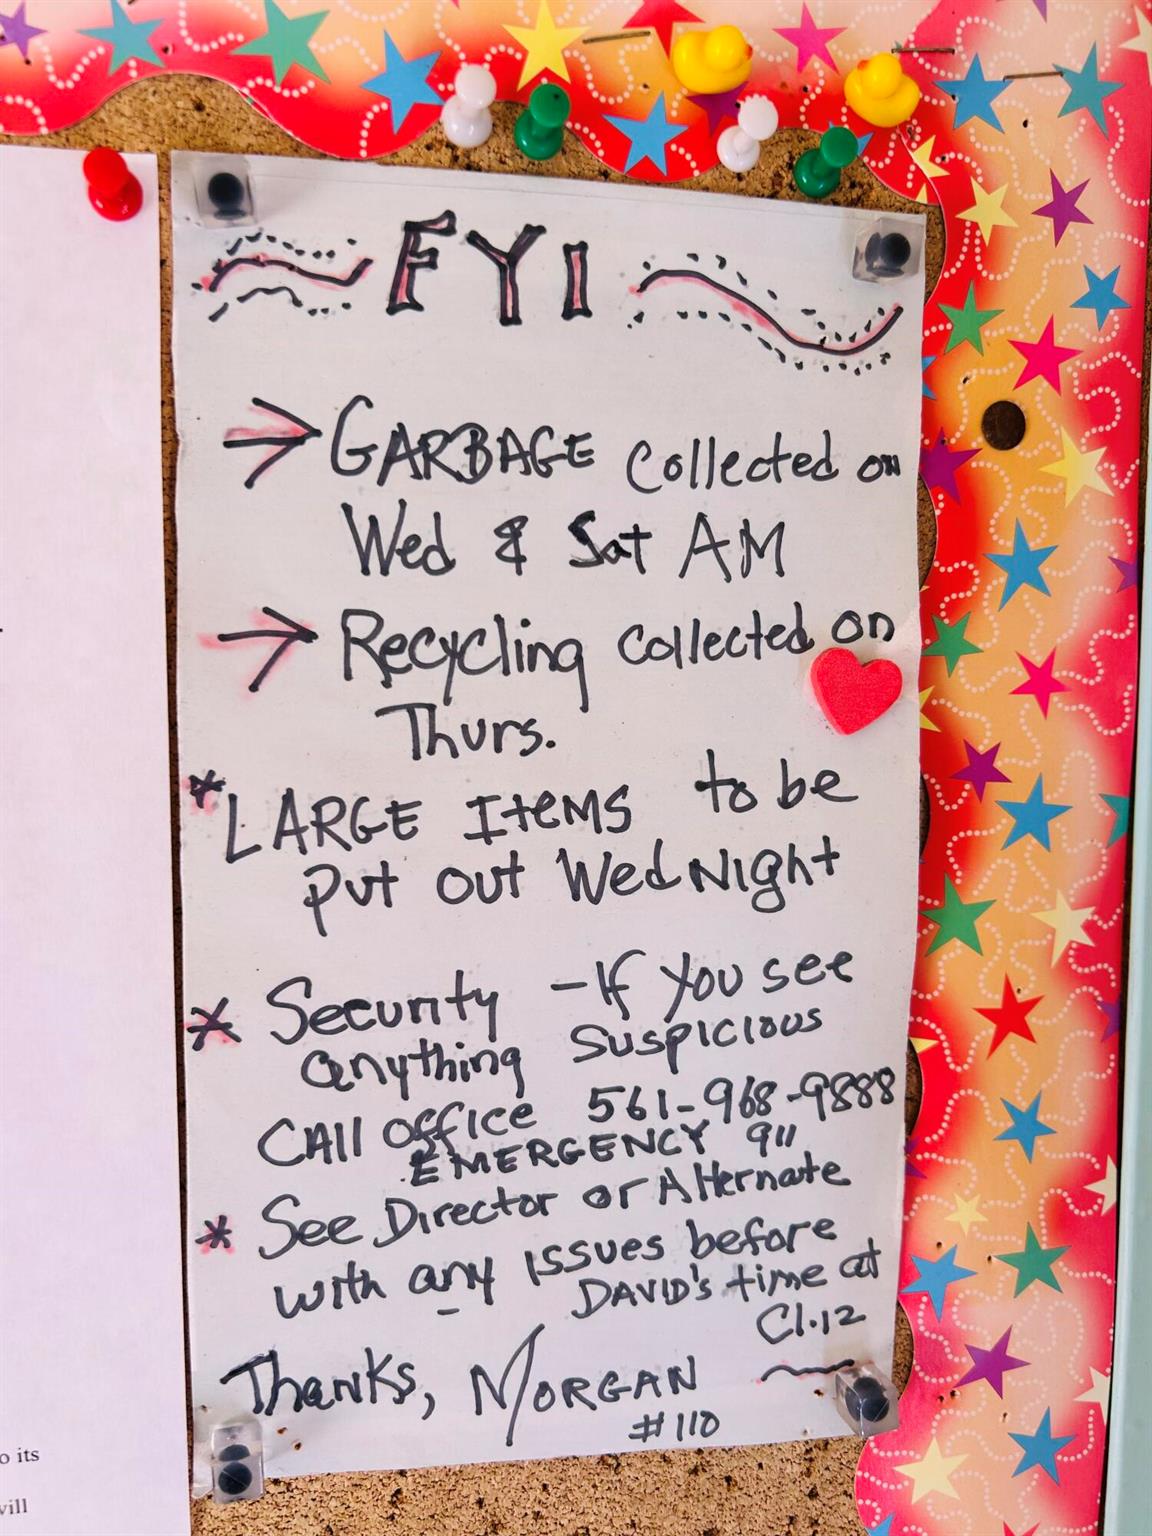 FYI
→ GARBAGE collected on
Wed & Sat AM
→ Recycling collected on
Thurs.
* LARGE Items to be
put out Wed Night
* Security - If you see
anything suspicious
CAll office 561-968-9888
EMERGENCY 911
* See Director or Alternate
with any issues before
DAVID's time at
Cl.12
Thanks, MORGAN
#110
o its
will